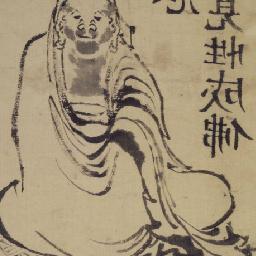 見性成佛